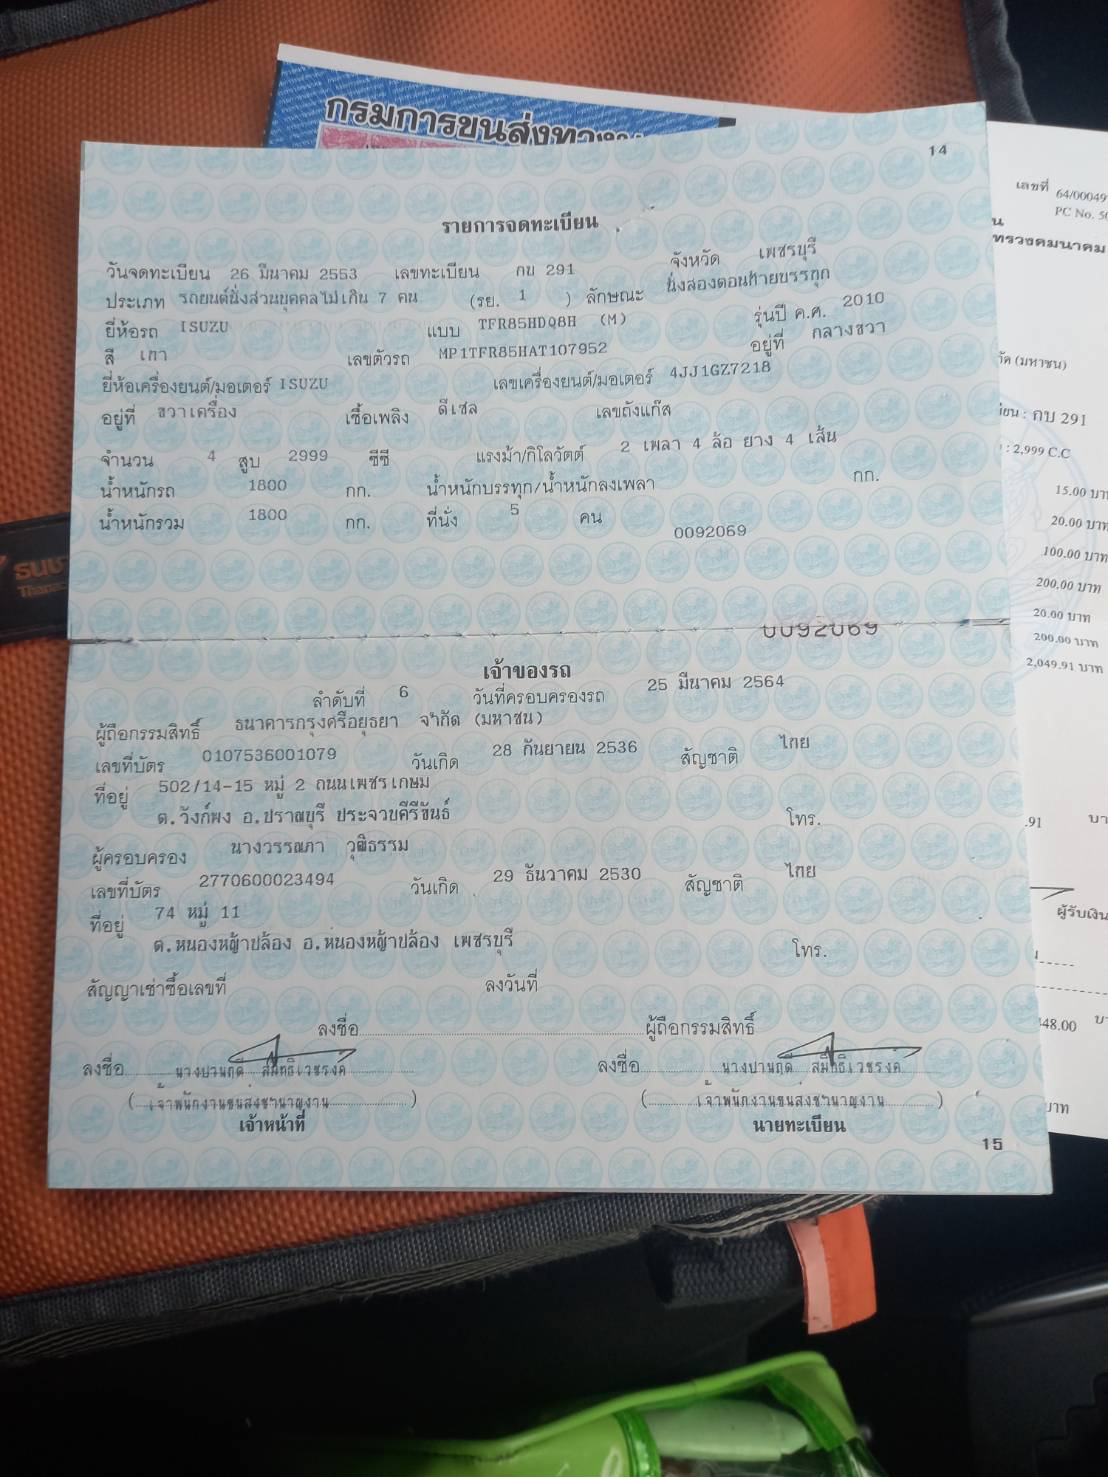 กรมการขนส่งทาง
14
รายการจดทะเบียน
วันจดทะเบียน 26 มีนาคม 2553 เลขทะเบียน กบ 291 จังหวัด เพชรบุรี
ประเภท รถยนต์นั่งส่วนบุคคลไม่เกิน 7 คน (รย. 1 ) ลักษณะ นั่งสองตอนท้ายบรรทุก
ยี่ห้อรถ ISUZU แบบ TFR85HDQ8H (M) รุ่นปี ค.ศ. 2010
สี เทา เลขตัวรถ MP1TFR85HAT107952 อยู่ที่ กลางขวา
ยี่ห้อเครื่องยนต์/มอเตอร์ ISUZU เลขเครื่องยนต์/มอเตอร์ 4JJ1GZ7218
อยู่ที่ ขวาเครื่อง เชื้อเพลิง ดีเซล เลขถังแก๊ส
จำนวน 4 สูบ 2999 ซีซี แรงม้า/กิโลวัตต์ 2 เพลา 4 ล้อ ยาง 4 เส้น
น้ำหนักรถ 1800 กก. น้ำหนักบรรทุก/น้ำหนักลงเพลา กก.
น้ำหนักรวม 1800 กก. ที่นั่ง 5 คน
0092069
0092069
เจ้าของรถ
ลำดับที่ 6 วันที่ครอบครองรถ 25 มีนาคม 2564
ผู้ถือกรรมสิทธิ์ ธนาคารกรุงศรีอยุธยา จำกัด (มหาชน)
เลขที่บัตร 0107536001079 วันเกิด 28 กันยายน 2536 สัญชาติ ไทย
ที่อยู่ 502/14-15 หมู่ 2 ถนนเพชรเกษม
ต.วังก์พง อ.ปราณบุรี ประจวบคีรีขันธ์ โทร.
ผู้ครอบครอง นางวรรณภา วุฒิธรรม
เลขที่บัตร 2770600023494 วันเกิด 29 ธันวาคม 2530 สัญชาติ ไทย
ที่อยู่ 74 หมู่ 11
ต.หนองหญ้าปล้อง อ.หนองหญ้าปล้อง เพชรบุรี โทร.
สัญญาเช่าซื้อเลขที่ ลงวันที่
ลงชื่อ ผู้ถือกรรมสิทธิ์
ลงชื่อ นางปานฤดี สัมฤทธิ์เวชรงค์ ลงชื่อ นางปานฤดี สัมฤทธิ์เวชรงค์
(เจ้าพนักงานขนส่งชำนาญงาน) (เจ้าพนักงานขนส่งชำนาญงาน)
เจ้าหน้าที่ นายทะเบียน
15
เลขที่ 64/00049
PC No. 50
น
ทรวงคมนาคม
กัด (มหาชน)
เบียน : กบ 291
: 2,999 C.C
15.00 บาท
20.00 บาท
100.00 บาท
200.00 บาท
20.00 บาท
200.00 บาท
2,049.91 บาท
.91 บา
ผู้รับเงิน
48.00 บ
บาท
ธนช
Thana